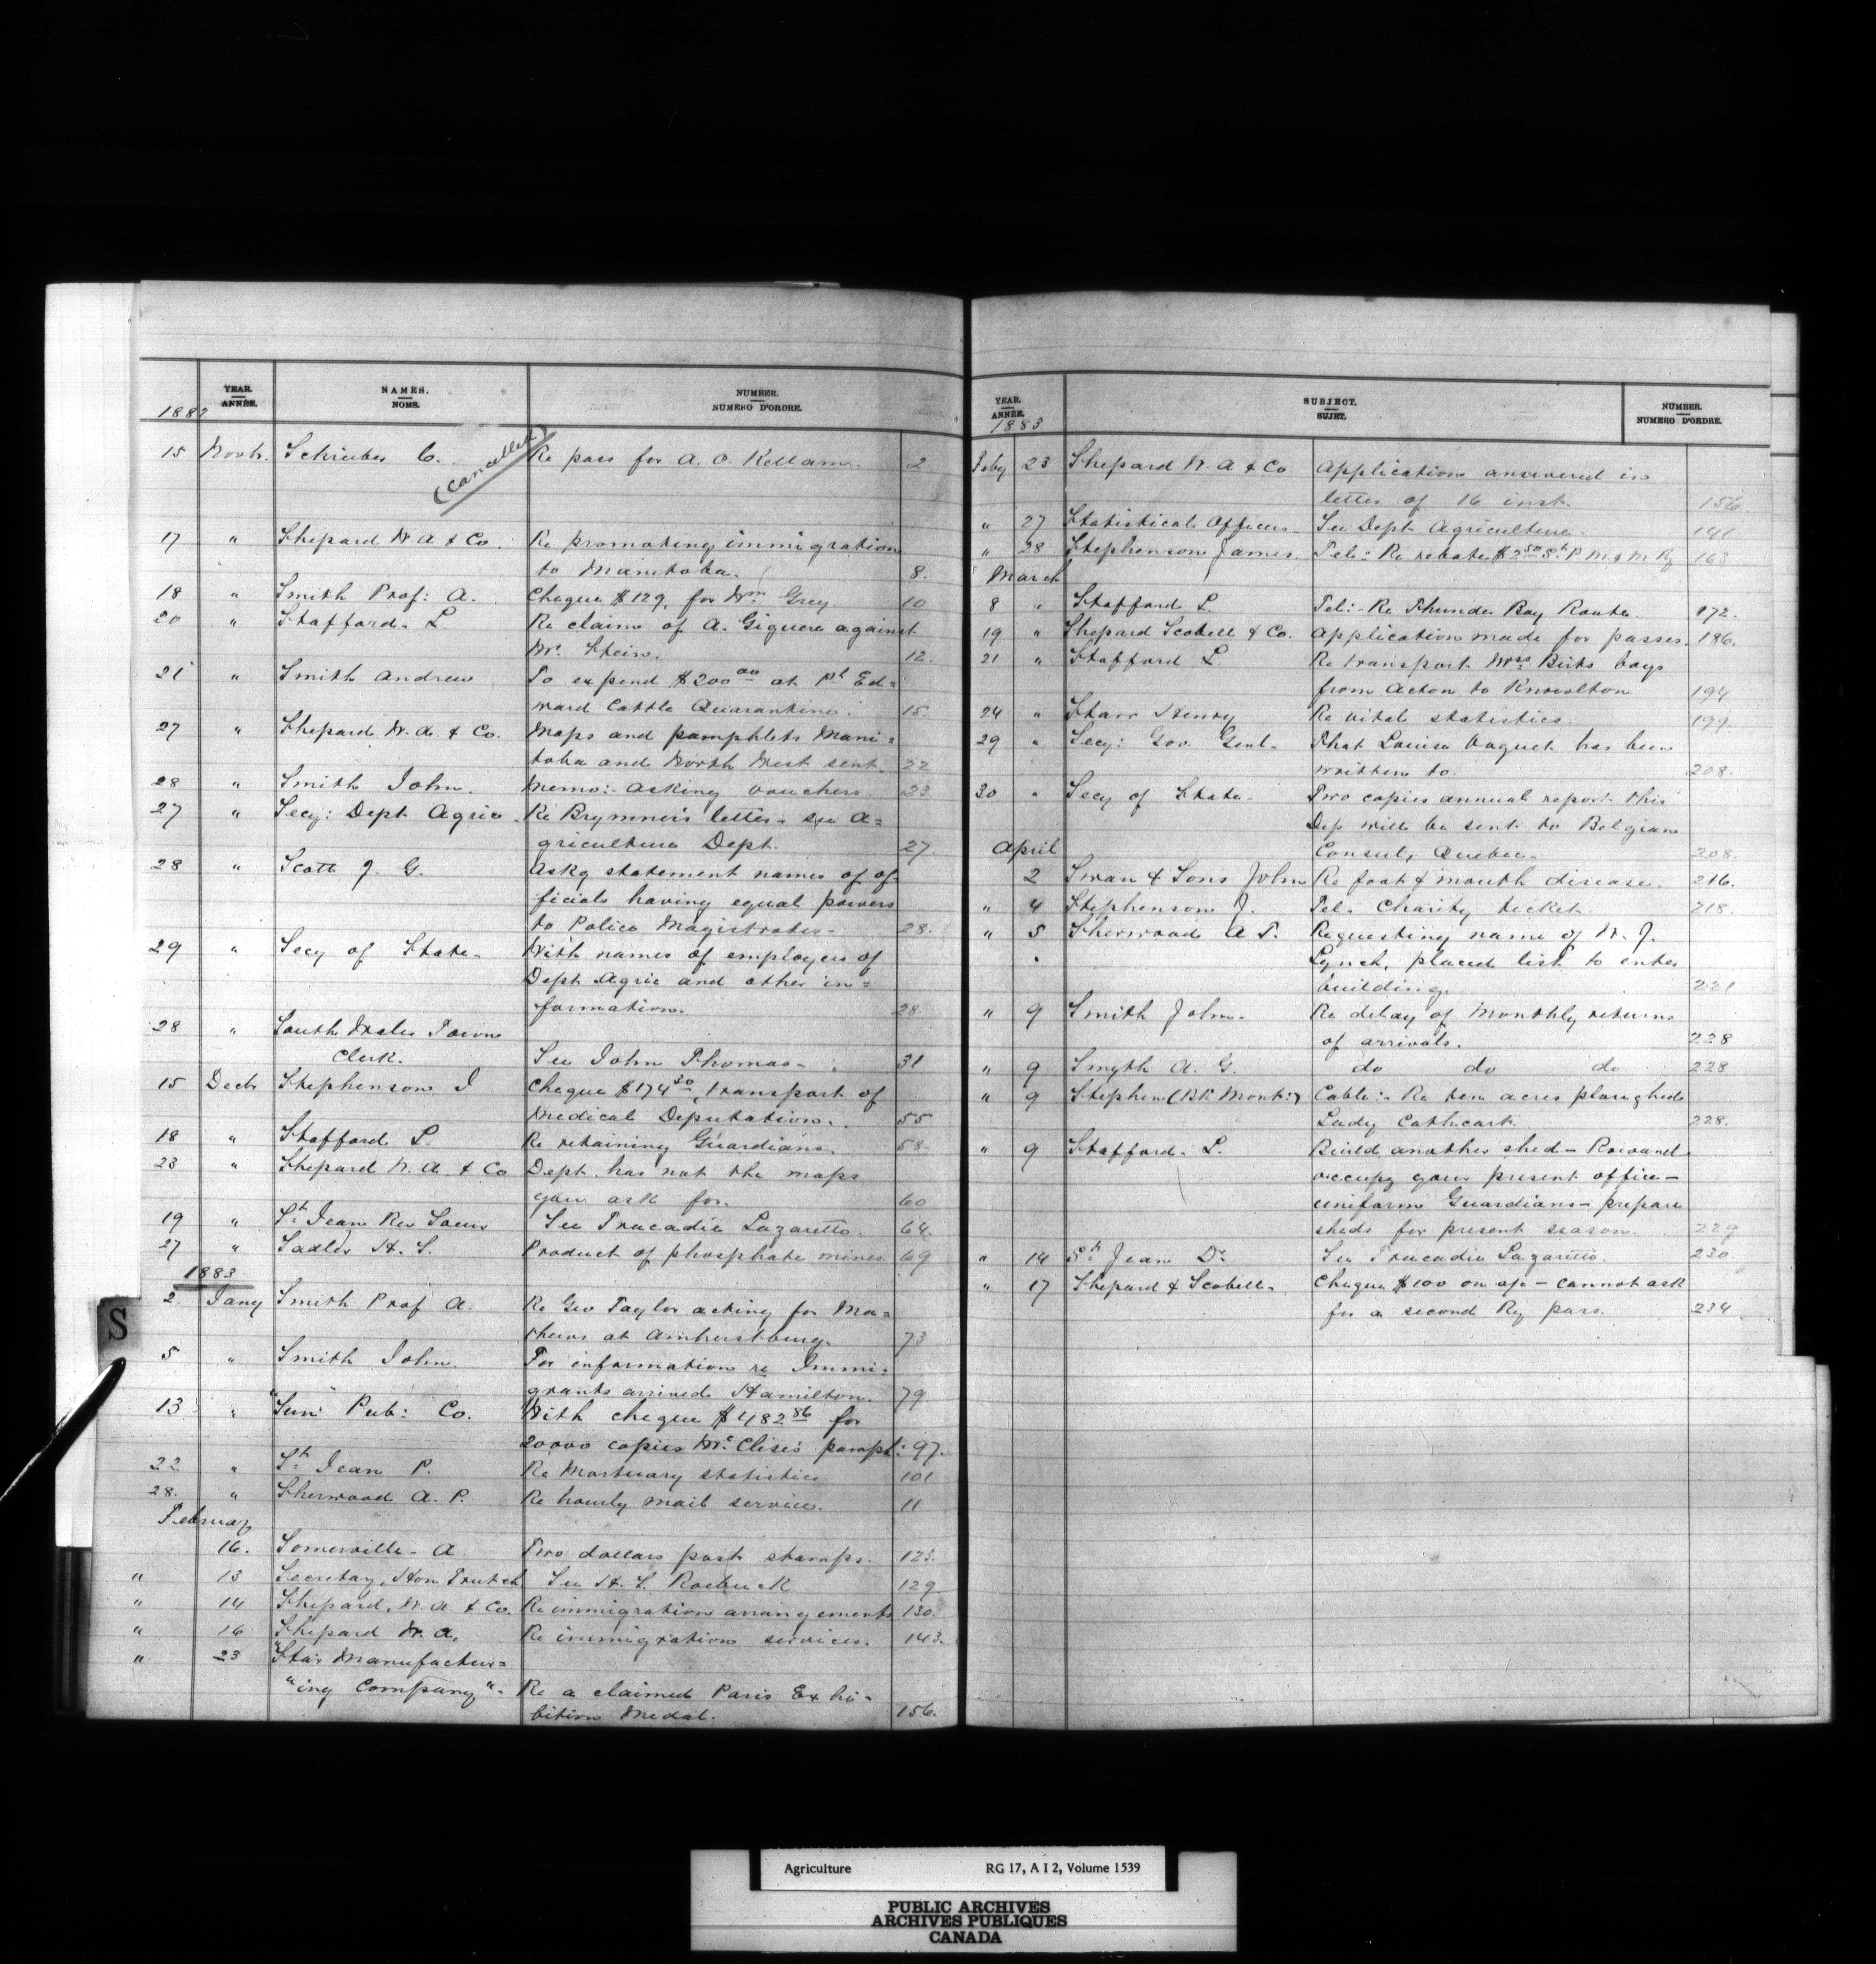 YEAR. ANNÉE. NAMES. NOMS. NUMBER. NUMERO D'ORDRE.
1882
15 Novbr. Schrieber C. (cancelled) Re pass for A. O. Kellam. 2
17 " Shepard W. A & Co. Re promoting immigration
to Manitoba. 8.
18 " Smith Prof: A. Cheque $129, for Wm Grey 10
20 " Stafford. L Re claim of A. Giguere against
Mr. Stein. 12.
21 " Smith Andrew To expend $200 00 at Pt Ed=
ward Cattle Quarantine. 15.
27 " Shepard W. A. & Co. Maps and pamphlets Mani=
toba and North West sent. 22
28 " Smith John. Memo:- Asking vouchers 23.
27 " Secy: Dept Agric. Re Brymner's letter - see A=
griculture Dept. 27.
28 " Scott J. G. Askg statement names of of-
ficials having equal powers
to Police Magistrates- 28.
29 " Secy of State- With names of employees of
Dept Agric and other in=
formation. 28.
28 " South Wales Town
Clerk. See John Thomas- 31
15 Decbr Stephenson J Cheque $174 30, transport of
Medical Deputation. 55
18 " Stafford L. Re retaining Guardians. 58.
23 " Shepard W. A. & Co Dept. has not the maps
you ask for. 60
19 " St Jean Rev Soeur See Tracadie Lazaretto. 64.
27 " Sadler H. S. Product of phosphate mines 69
1883
2 Jany Smith Prof A. Re Geo Taylor acting for Ma=
thews at Amherstburg. 73
5 " Smith John For information re Immi=
grants arrived Hamilton. 79.
13 " "Sun" Pub: Co. With cheque $482 86 for
20000 copies Mr. Clise's pamph: 97.
22 " St Jean P. Re Mortuary statistics 101
28. " Sherwood A. P. Re hourly mail service. 11
February
16. Somerville- A. Two dollars post stamps. 123.
" 13 Secretary, Hon Trutch See H. S. Roebuck 129.
" 14 Shepard, W. A. & Co. Re immigration arrangements 130.
" 16 Shepard W. A. Re immigration services. 143.
" 23 "Star Manufactur=
"ing Company"- Re a claimed Paris Exhi-
bition Medal. 156.
S
YEAR. ANNÉE. SUBJECT. SUJET. NUMBER. NUMERO D'ORDRE.
1883
Feby 23 Shepard W. A & Co Application answered in
letter of 16 inst. 156.
" 27 Statistical Officers- See Dept. Agriculture. 141
" 28 Stephenson James. Tel:- Re rebate $2 50 St P. M. & M. Ry 163.
March
8 " Stafford L. Tel:- Re Thunder Bay Route. 172.
19 " Shepard Scobell & Co. Application made for passes. 186.
21 " Stafford L Re transport Mrs Birts boys
from Acton to Knowlton 194
24 " Starr Henry Re vital statistics. 199.
29 " Secy: Gov. Genl- That Louisa has been
written to. 208.
30 " Secy of State- Two copies annual report this
Dep will be sent to Belgian
Consul, Quebec- 208.
April
2 Swan & Sons John Re foot & mouth disease. 216.
" 4 Stephenson J. Tel. Charity ticket 218.
" 5 Sherwood A P. Requesting name of W. J.
Lynch, placed list to enter
building. 221
" 9 Smith John. Re delay of Monthly returns
of arrivals. 228
" 9 Smyth A. G. do do do 228
" 9 Stephen (Bk Mont:) Cable:- Re ten acres ploughed
Lady Cathcart. 228.
" 9 Stafford. L. Build another shed-
occupy your present office-
uniform Guardians- prepare
sheds for present season. 229
" 14 St Jean Dr See Tracadie Lazaretto. 230.
" 17 Shepard & Scobell- Cheque $100 on a/c - cannot ask
for a second Ry pass. 234
Agriculture RG 17, A I 2, Volume 1539
PUBLIC ARCHIVES
ARCHIVES PUBLIQUES
CANADA